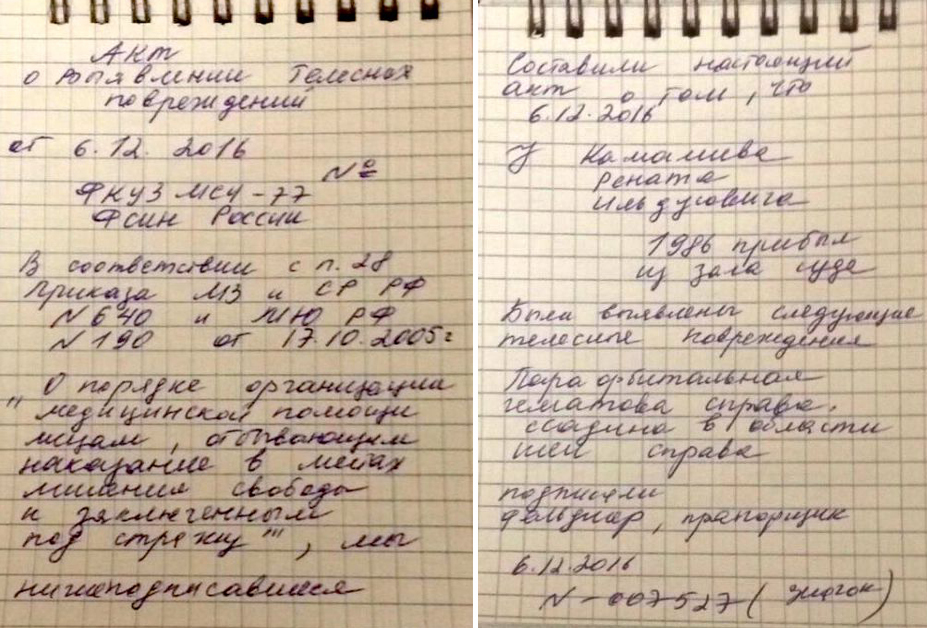 Акт
о выявлении телесных
повреждений
от 6.12.2016
№
ФКУЗ МСЧ-77
Фсин России
В соответствии с п. 28
Приказа МЗ и СР РФ
N 640 и МЮ РФ
N 190 от 17.10.2005г
"О порядке организации
медицинской помощи
лицам, отбывающим
наказание в местах
лишения свободы
и заключенным
под стражу"", мы
нижеподписавшиеся
Составили настоящий
акт о том, что
6.12.2016
У Камалиева
Рената
Ильдусовича
1986 прибыл
из зала суда
Были выявлены следующие
телесные повреждения
Пара орбитальная
гематома справа.
ссадина в области
шеи справа
подписали
фельдшер, прапорщик
6.12.2016
N-007527 (жетон)